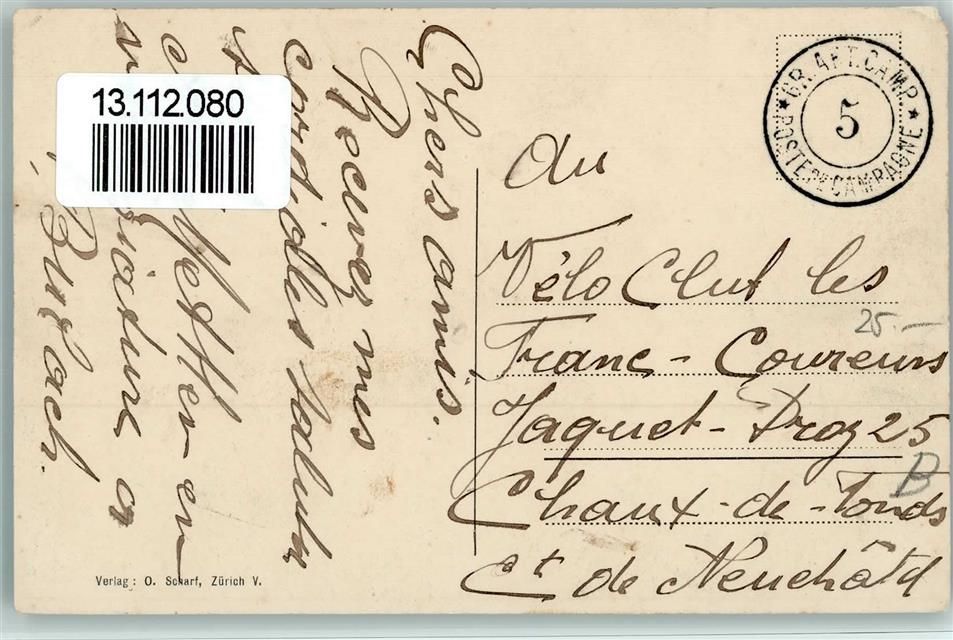 13.112.080
GR. ART. CAMP.
5
POSTE DE CAMPAGNE
Chers amis.
Recevez mes
cordiales saluts
en
Bülach.
Au
Vélo Club les
Franc-Coureurs
Jaquet-Droz 25
Chaux-de-Fonds
Ct de Neuchâtel
25.-
B
Verlag: O. Scharf, Zürich V.